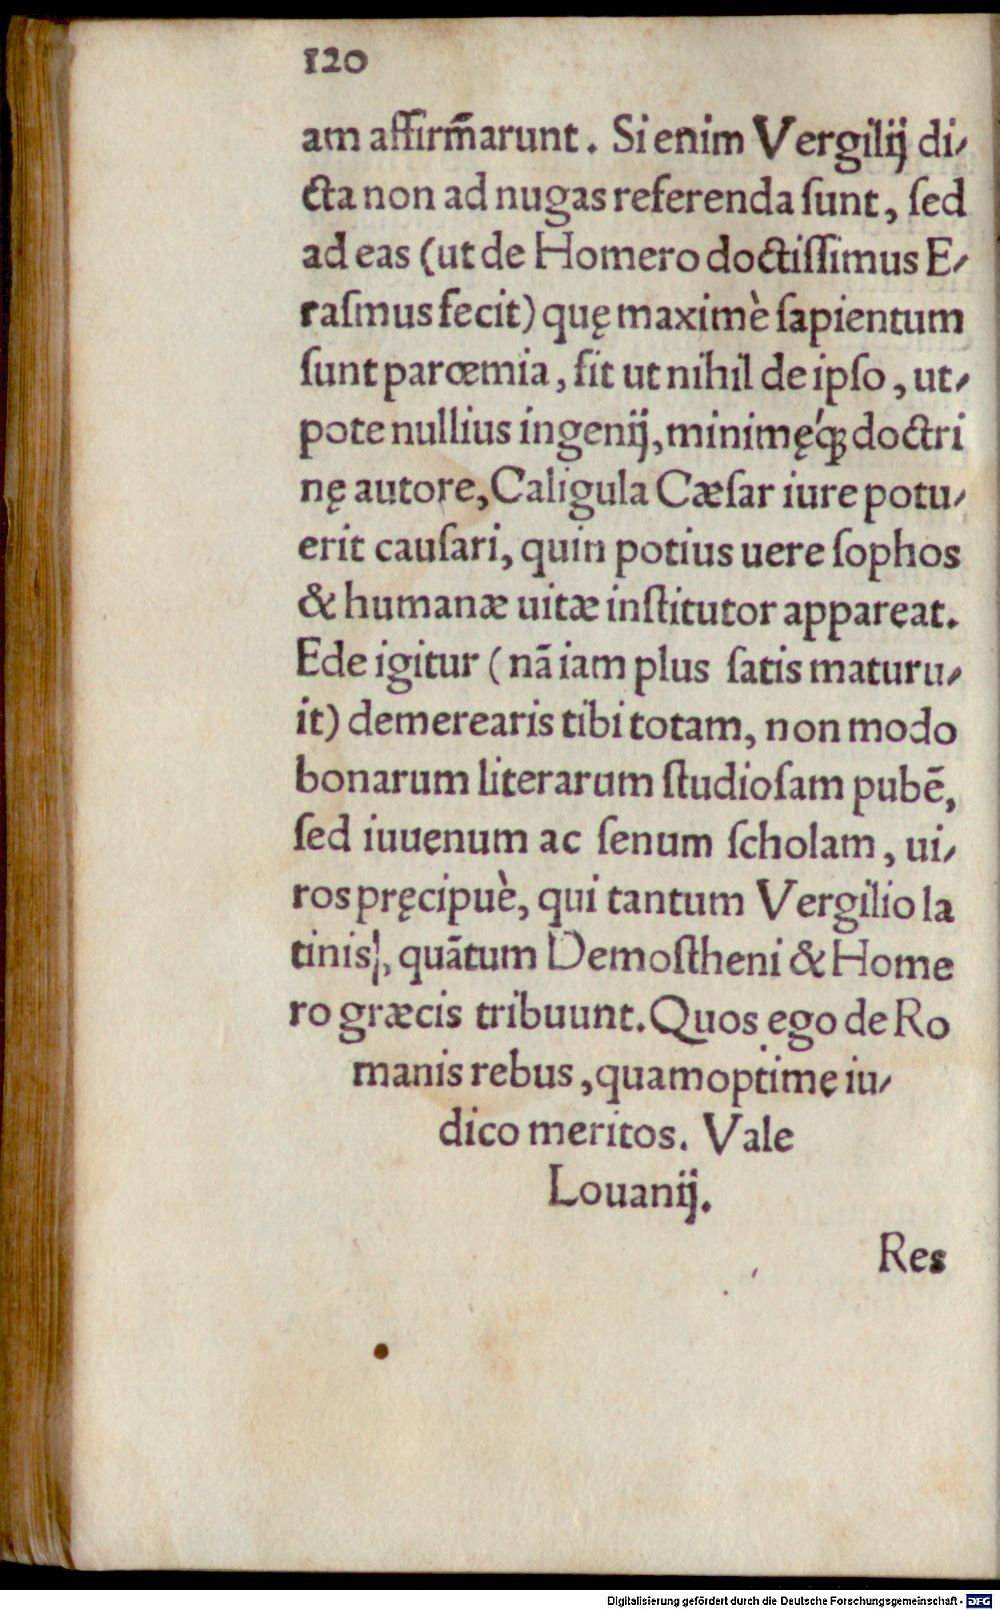 120
am affirm̄arunt. Si enim Vergilij di⸗
cta non ad nugas referenda ſunt, ſed
ad eas (ut de Homero doctiſſimus E⸗
raſmus fecit) quę maximè ſapientum
ſunt parœmia, fit ut nihil de ipſo, ut⸗
pote nullius ingenij, minimęq́ꝫ doctri
nę autore, Caligula Cæſar iure potu⸗
erit cauſari, quin potius uere ſophos
& humanæ uitæ inſtitutor appareat.
Ede igitur (nā iam plus ſatis maturu⸗
it) demerearis tibi totam, non modo
bonarum literarum ſtudioſam pubē,
ſed iuuenum ac ſenum ſcholam, ui⸗
ros pręcipuè, qui tantum Vergilio la
tinis, quātum Demoſtheni & Home
ro græcis tribuunt. Quos ego de Ro
manis rebus, quam optime iu⸗
dico meritos. Vale
Louanij.
Res
Digitalisierung gefördert durch die Deutsche Forschungsgemeinschaft - DFG